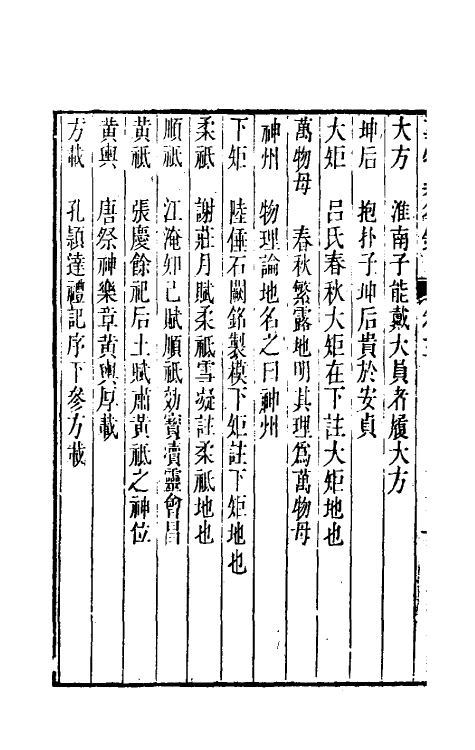 大方　淮南子能戴大員者履大方
坤后　抱扑子坤后貴於安貞
大矩　呂氏春秋大矩在下註大矩地也
萬物母　春秋繁露地明其理爲萬物母
神州　物理論地名之曰神州
下矩　陸倕石闕銘製模下矩註下矩地也
柔祇　謝莊月賦柔祇雪凝註柔祇地也
順祇　江淹知己賦順祇効寳賣靈會昌
黃祇　張慶餘祀后土賦肅黃祇之神位
黃輿　唐祭神樂章黃輿厚載
方載　孔頴達禮記序下參方載